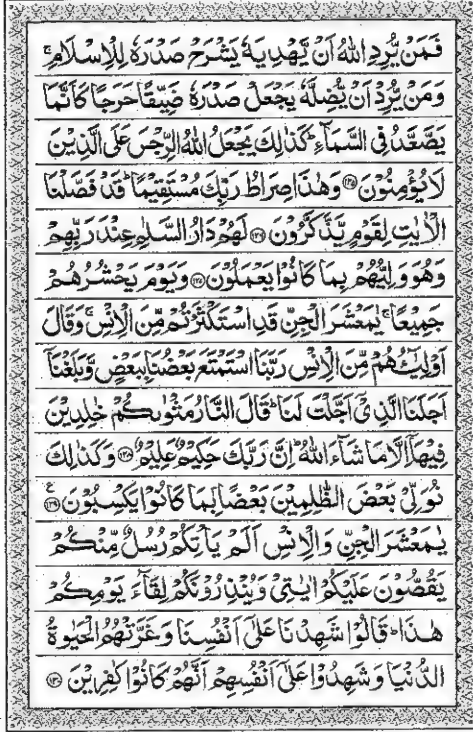 فَمَنْ يُّرِدِ اللّٰهُ اَنْ يَّهْدِيَهٗ يَشْرَحْ صَدْرَهٗ لِلْاِسْلَامِ ۚ
وَمَنْ يُّرِدْ اَنْ يُّضِلَّهٗ يَجْعَلْ صَدْرَهٗ ضَيِّقًا حَرَجًا كَاَنَّمَا
يَصَّعَّدُ فِى السَّمَآءِ ؕ كَذٰلِكَ يَجْعَلُ اللّٰهُ الرِّجْسَ عَلَى الَّذِيْنَ
لَا يُؤْمِنُوْنَ ۝۱۲۵ وَهٰذَا صِرَاطُ رَبِّكَ مُسْتَقِيْمًا ؕ قَدْ فَصَّلْنَا
الْاٰيٰتِ لِقَوْمٍ يَّذَّكَّرُوْنَ ۝۱۲۶ لَهُمْ دَارُ السَّلٰمِ عِنْدَ رَبِّهِمْ
وَهُوَ وَلِيُّهُمْ بِمَا كَانُوْا يَعْمَلُوْنَ ۝۱۲۷ وَيَوْمَ يَحْشُرُهُمْ
جَمِيْعًا ۚ يٰمَعْشَرَ الْجِنِّ قَدِ اسْتَكْثَرْتُمْ مِّنَ الْاِنْسِ ۚ وَقَالَ
اَوْلِيٰٓـُٔهُمْ مِّنَ الْاِنْسِ رَبَّنَا اسْتَمْتَعَ بَعْضُنَا بِبَعْضٍ وَّبَلَغْنَآ
اَجَلَنَا الَّذِىْٓ اَجَّلْتَ لَنَا ؕ قَالَ النَّارُ مَثْوٰىكُمْ خٰلِدِيْنَ
فِيْهَآ اِلَّا مَا شَآءَ اللّٰهُ ؕ اِنَّ رَبَّكَ حَكِيْمٌ عَلِيْمٌ ۝۱۲۸ وَكَذٰلِكَ
نُوَلِّىْ بَعْضَ الظّٰلِمِيْنَ بَعْضًۢا بِمَا كَانُوْا يَكْسِبُوْنَ ۝۱۲۹ ع
يٰمَعْشَرَ الْجِنِّ وَالْاِنْسِ اَلَمْ يَاْتِكُمْ رُسُلٌ مِّنْكُمْ
يَقُصُّوْنَ عَلَيْكُمْ اٰيٰتِىْ وَيُنْذِرُوْنَكُمْ لِقَآءَ يَوْمِكُمْ
هٰذَا ؕ قَالُوْا شَهِدْنَا عَلٰٓى اَنْفُسِنَا وَغَرَّتْهُمُ الْحَيٰوةُ
الدُّنْيَا وَشَهِدُوْا عَلٰٓى اَنْفُسِهِمْ اَنَّهُمْ كَانُوْا كٰفِرِيْنَ ۝۱۳۰